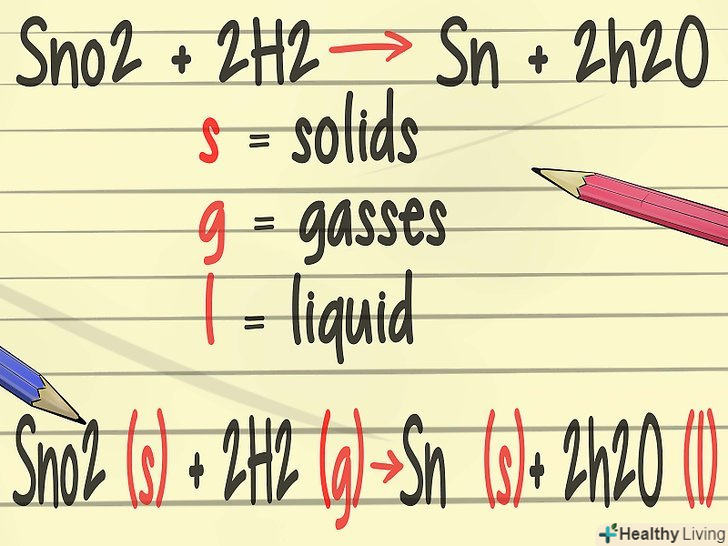 Sno2 + 2H2 → Sn + 2h2O
s = solids
g = gasses
l = liquid
Sno2 (s) + 2H2 (g) → Sn (s) + 2h2O (l)
Healthy Living